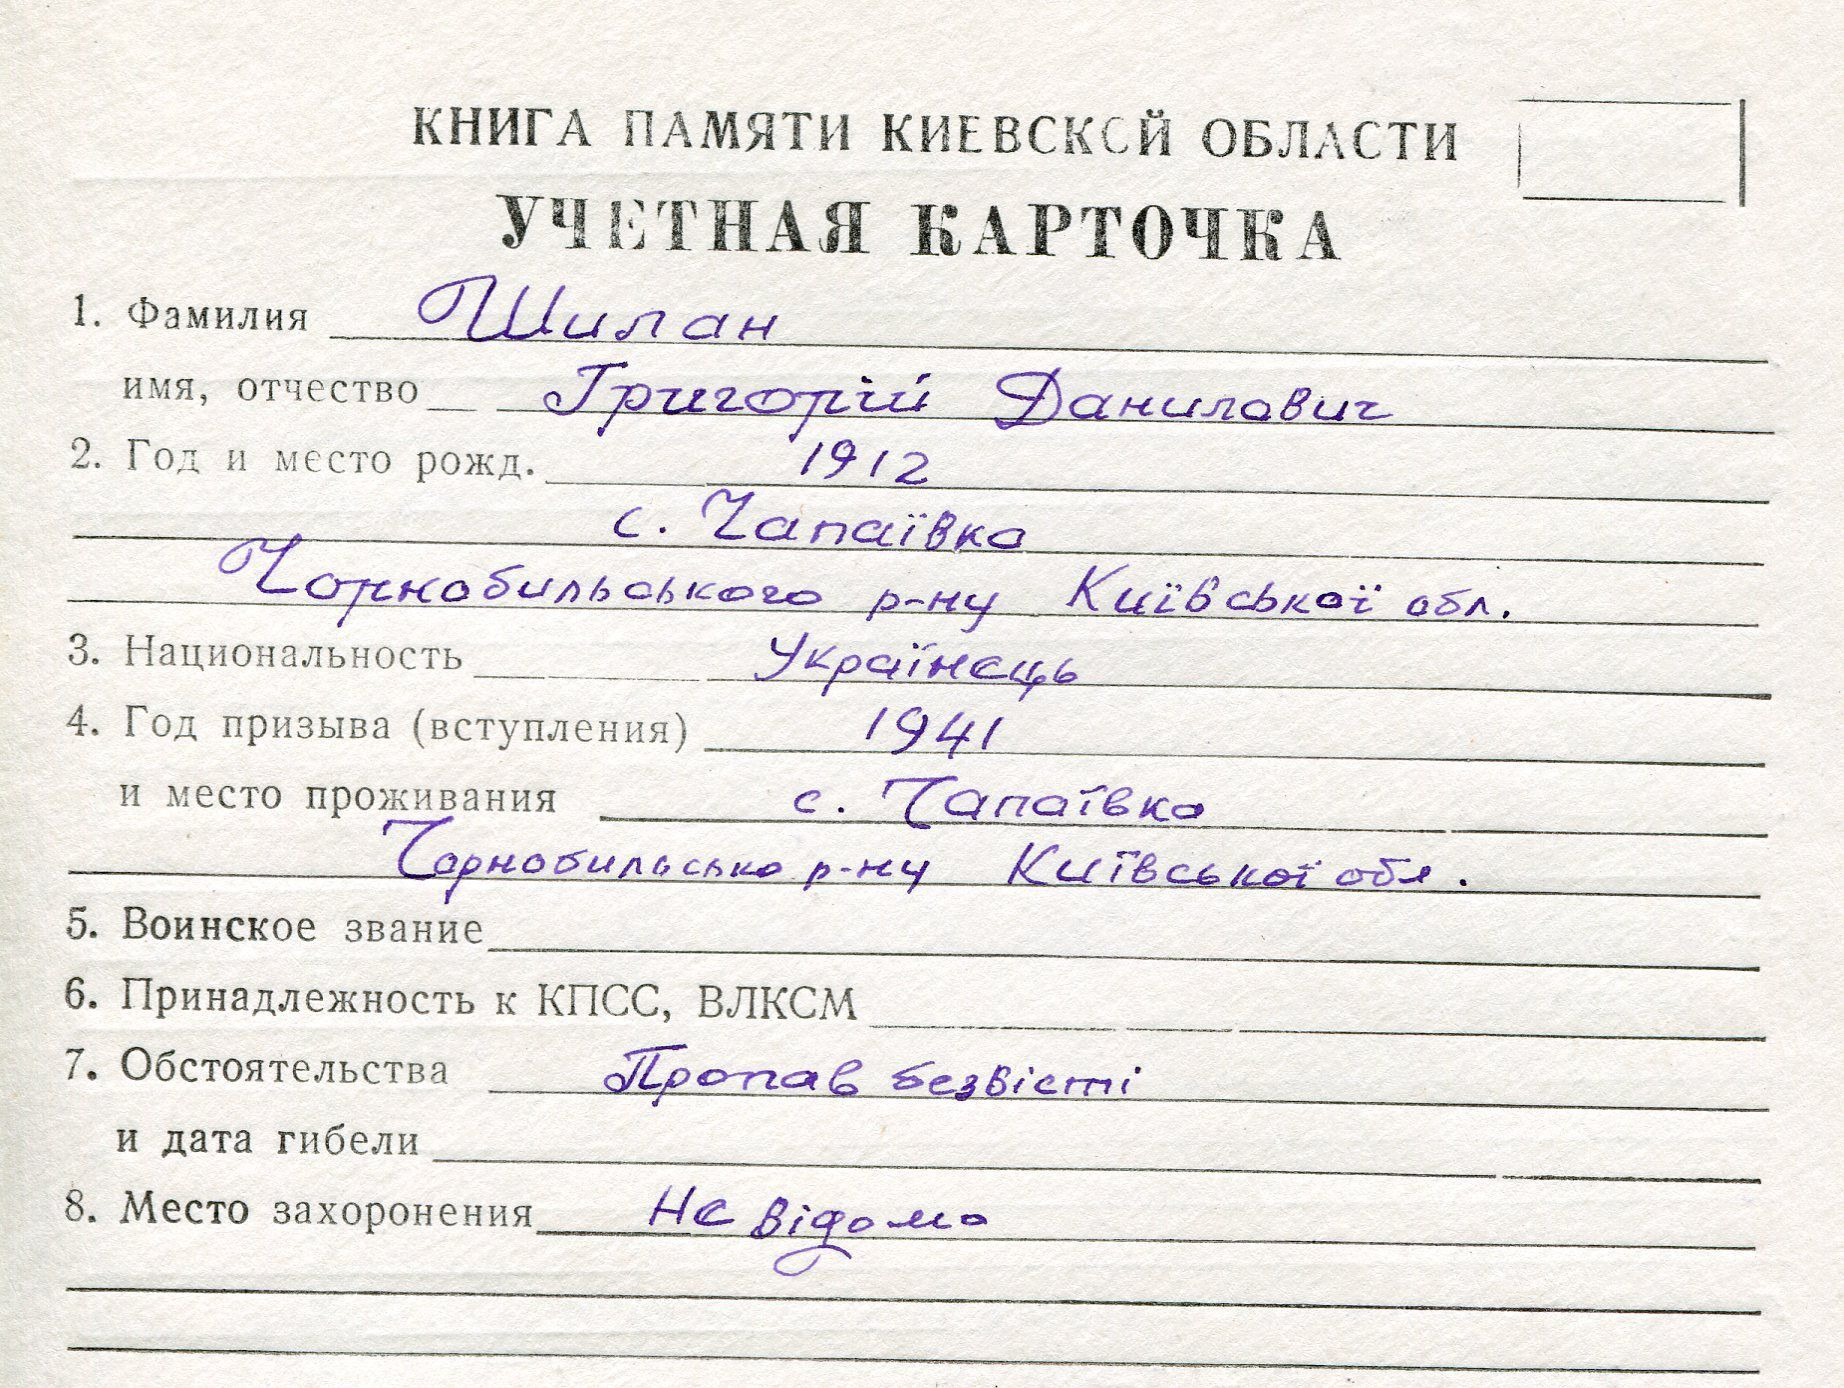 КНИГА ПАМЯТИ КИЕВСКОЙ ОБЛАСТИ
УЧЕТНАЯ КАРТОЧКА
1. Фамилия Шилан
имя, отчество Григорій Данилович
2. Год и место рожд. 1912
с. Чапаївка
Чорнобильського р-ну Київської обл.
3. Национальность Українець
4. Год призыва (вступления) 1941
и место проживания с. Чапаївка
Чорнобильсько р-ну Київської обл.
5. Воинское звание
6. Принадлежность к КПСС, ВЛКСМ
7. Обстоятельства Пропав безвісті
и дата гибели
8. Место захоронения Не відомо